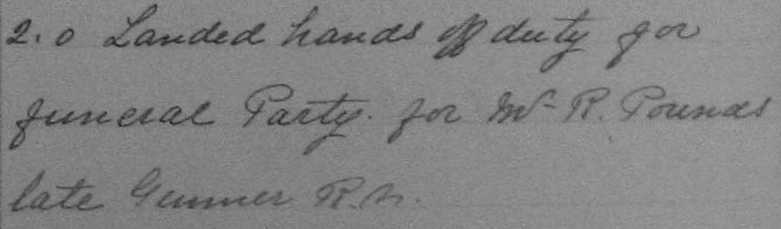 2.0 Landed hands off duty for
funeral Party. for Mr R. Pounds
late Gunner R.N.